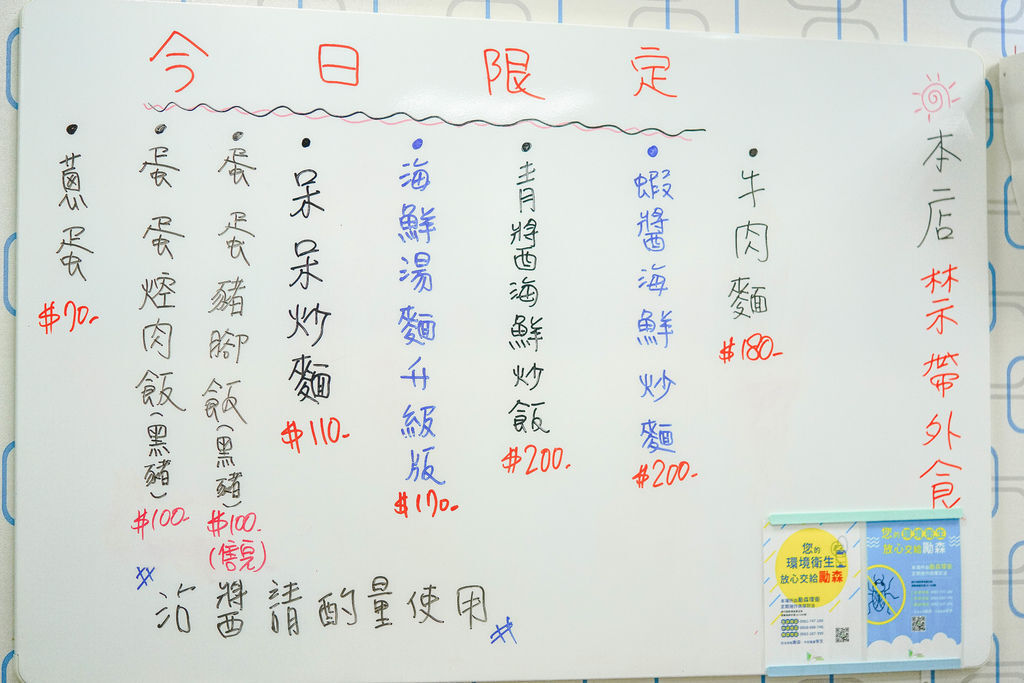 今日限定
本店禁帶外食
牛肉麵
$180-
蝦醬海鮮炒麵
$200-
青醬海鮮炒飯
$200.
海鮮湯麵升級版
$170-
呆呆炒麵
$110-
蛋蛋豬腳飯(黑豬)
$100-
(售完)
蛋蛋焢肉飯(黑豬)
$100-
蔥蛋
$70-
#沾醬請酌量使用#
您的
環境衛生
放心交給勵森
您的環境衛生
放心交給勵森